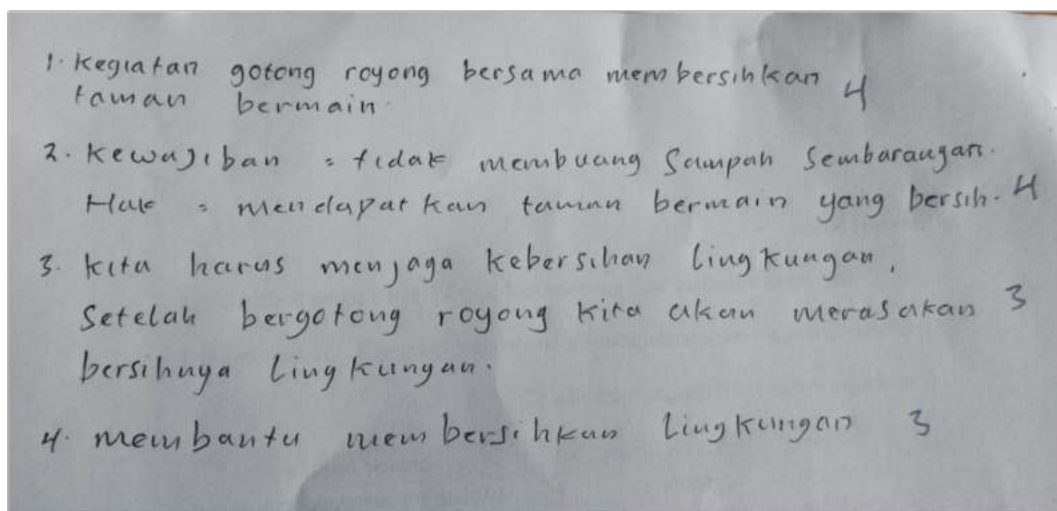 1. Kegiatan gotong royong bersama membersihkan 4
taman bermain.
2. Kewajiban = tidak membuang Sampah Sembarangan.
Hak = mendapatkan taman bermain yang bersih. 4
3. Kita harus menjaga kebersihan lingkungan,
Setelah bergotong royong kita akan merasakan 3
bersihnya lingkungan.
4. membantu membersihkan lingkungan 3